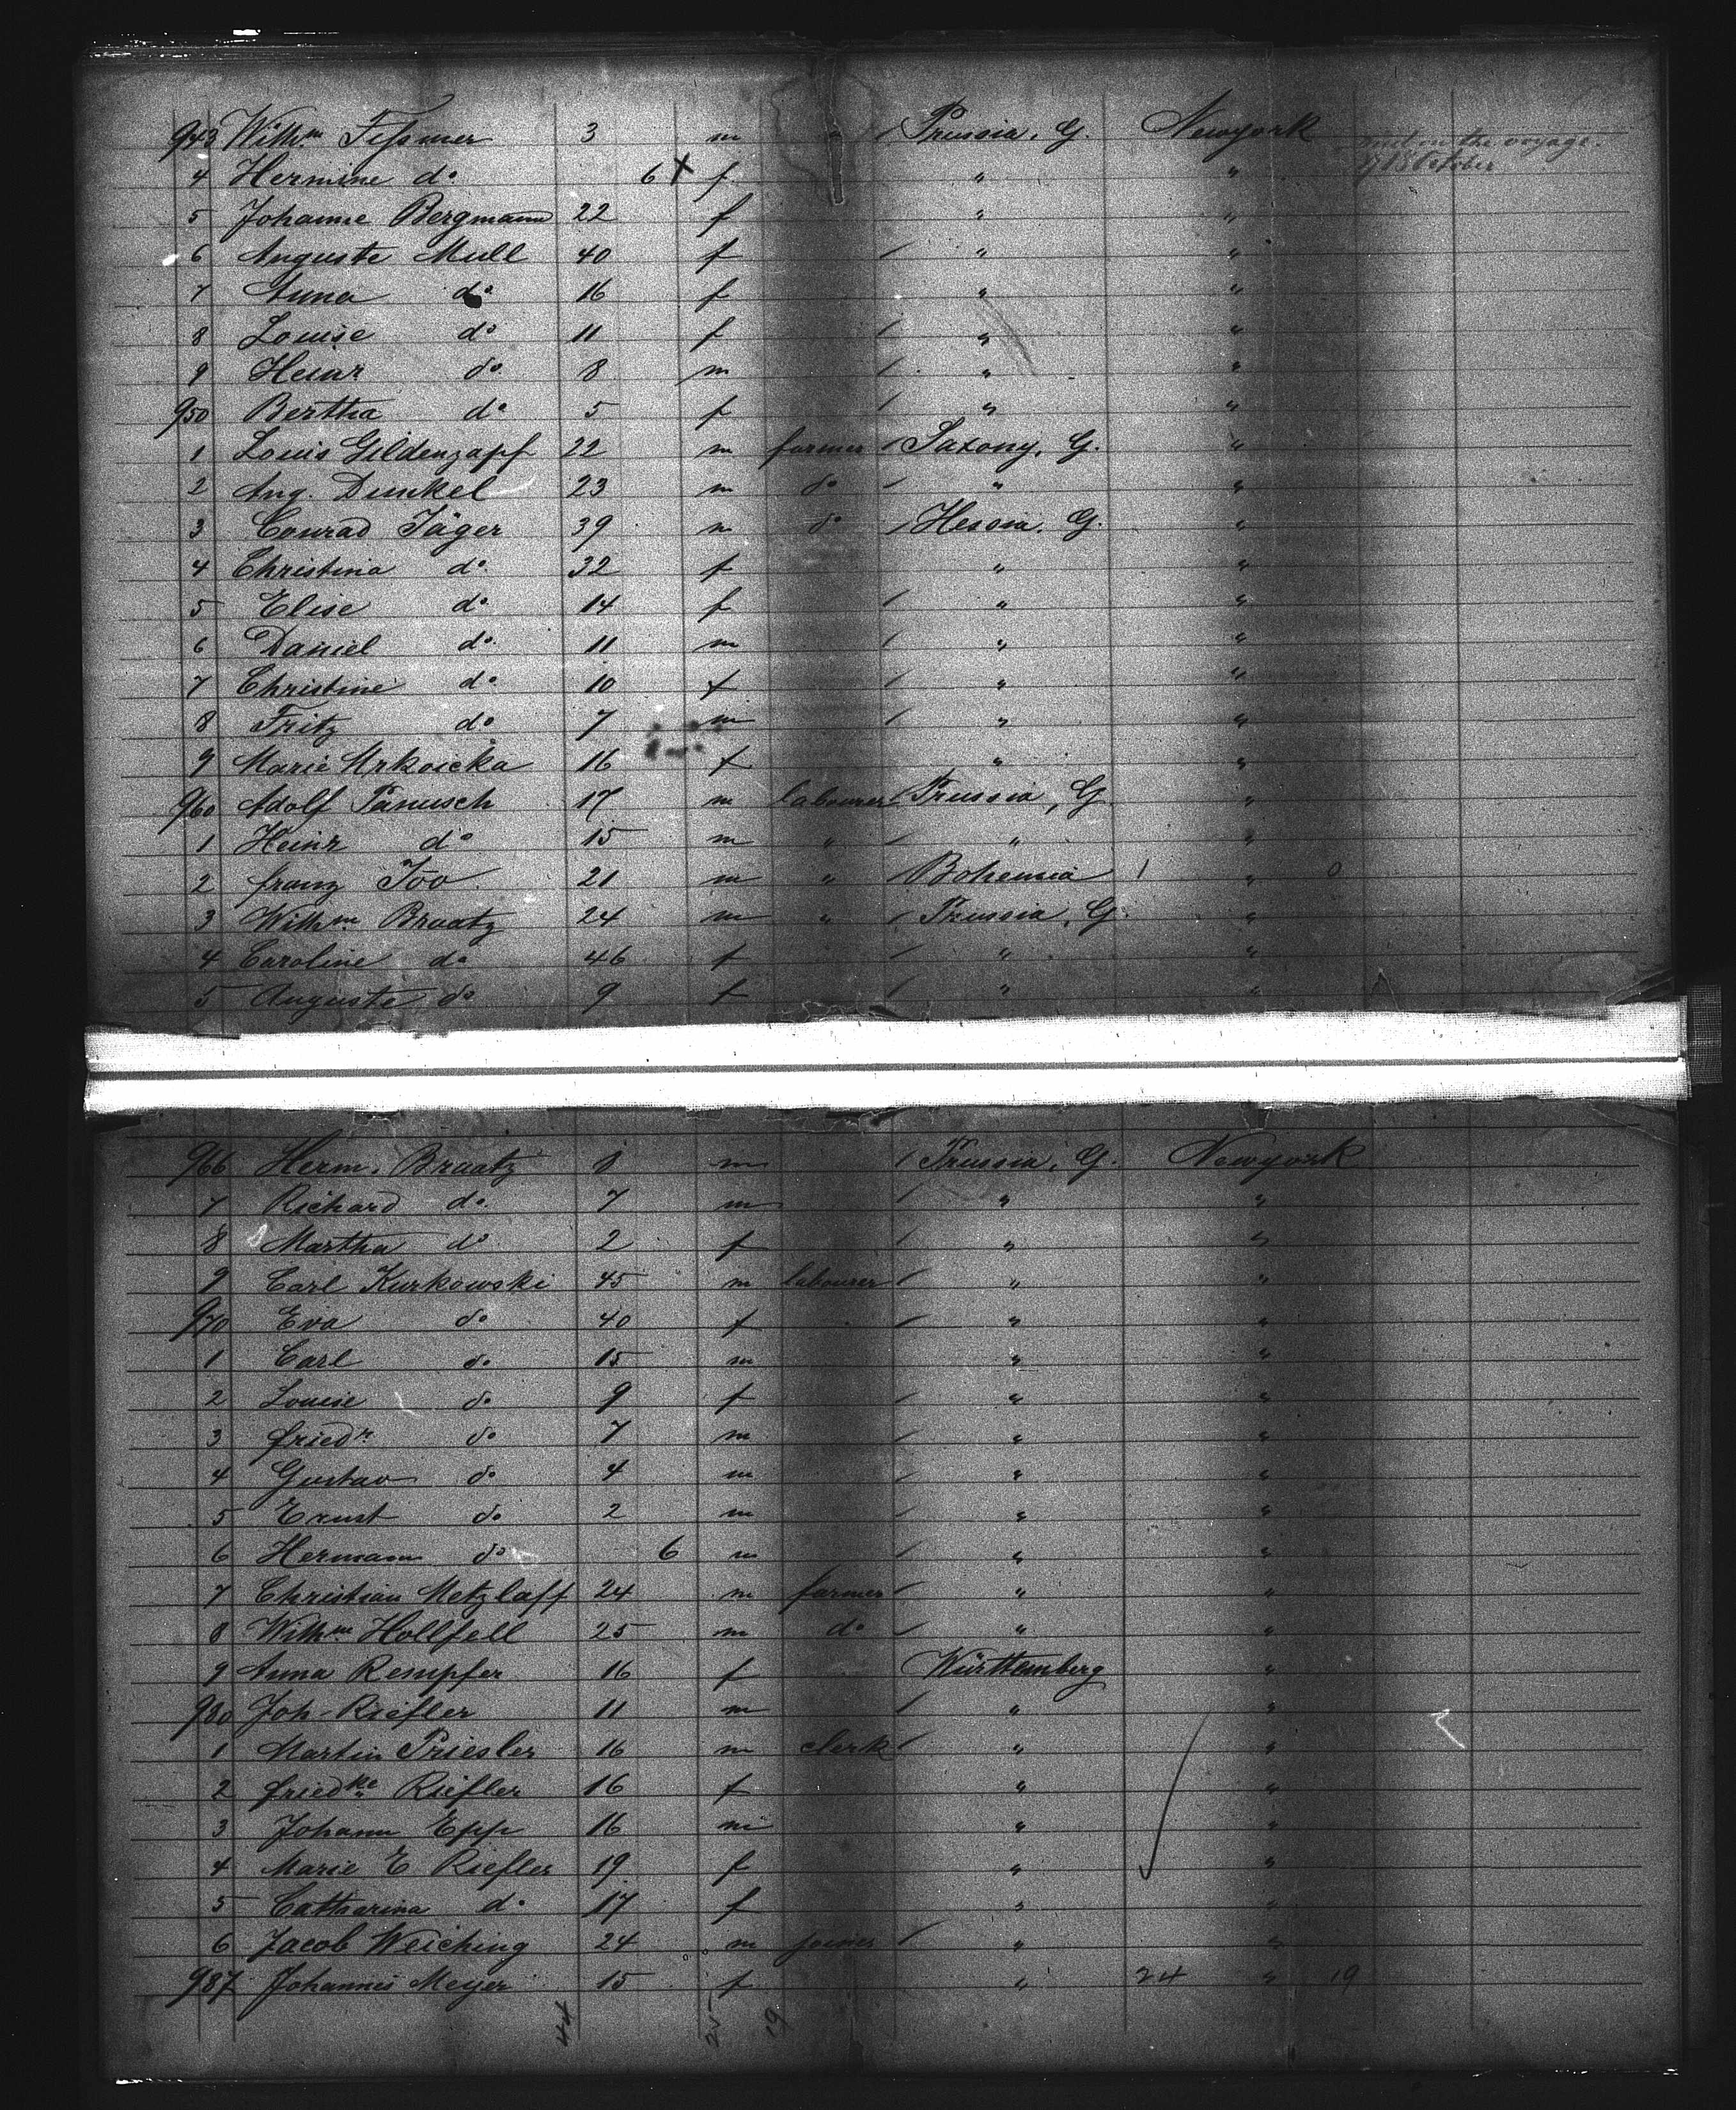 943 Wilhm Tessmer 3 m " / Prussia, G. Newyork died on the voyage.
4 Hermine do 6 X f " " 18 October
5 Johanne Bergmann 22 f " "
6 Auguste Mull 40 f / " "
7 Anna do 16 f " "
8 Louise do 11 f / " "
9 Heinr do 8 m / " "
950 Bertha do 5 f / " "
1 Louis Gildenzapf 22 m farmer / Saxony, G. "
2 Aug. Dunkel 23 m do / " "
3 Conrad Jäger 39 m do / Hessia. G. "
4 Christina do 32 f " "
5 Elise do 14 f / " "
6 Daniel do 11 m / " "
7 Christine do 10 f / " "
8 Fritz do 7 m / " "
9 Marie 16 f " "
960 Adolf Panusch 17 m labourer / Prussia, G "
1 Heinr do 15 m " / " "
2 franz 21 m " / Bohemia 1 " 0
3 Wilhm Braatz 24 m " / Prussia, G. "
4 Caroline do 46 f / " "
5 Auguste do 9 f / " "
966 Herm. Braatz 8 m / Prussia, G. Newyork
7 Richard do 7 m / " "
8 Martha do 2 f / " "
9 Carl Kurkowski 45 m labourer / " "
970 Eva do 40 f / " "
1 Carl do 15 m " "
2 Louise do 9 f / " "
3 friedr do 7 m / " "
4 Gustav do 4 m / " "
5 Ernst do 2 m / " "
6 Hermann do 6 m / " "
7 Christian Metzlaff 24 m farmer / " "
8 Wilhm Hollfell 25 m do / " "
9 Anna Rempfer 16 f Württemberg "
980 Joh. Riefler 11 m / " "
1 Martin Priesler 16 m clerk / " "
2 friedke Riefler 16 f " "
3 Johann Epp 16 m " "
4 Marie E Riefler 19 f " "
5 Catharina do 17 f " "
6 Jacob Weiching 24 m joiner / " "
987 Johannes Meyer 15 f " 24 " 19
44 25 19